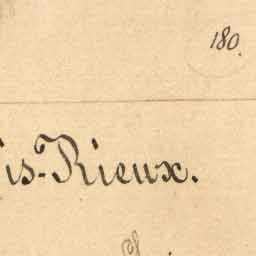 180.
is-Rieux.